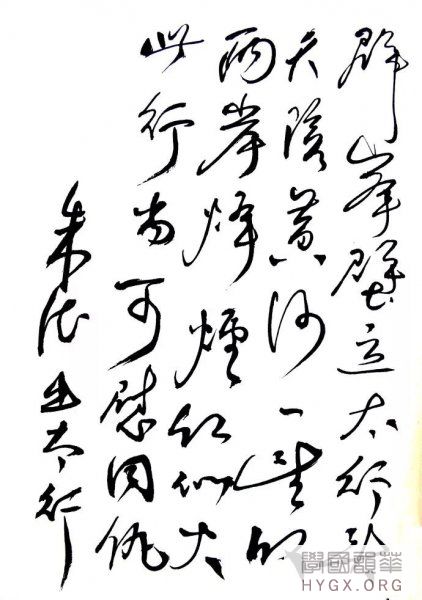 群峰壁立太行头
天险黄河一望收
两岸烽烟红似火
此行当可慰同仇
朱德出太行
華頤國學
HYGX.ORG